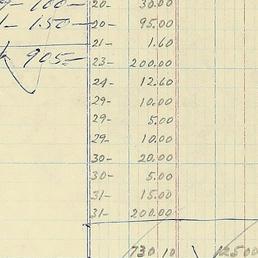 100- 20- 30.00
1- 150- 20- 95.00
21- 1.60
905- 23- 200.00
24- 12.60
29- 10.00
29- 5.00
29- 10.00
30- 20.00
30- 5.00
31- 15.00
31- 200.00
730 10 12500